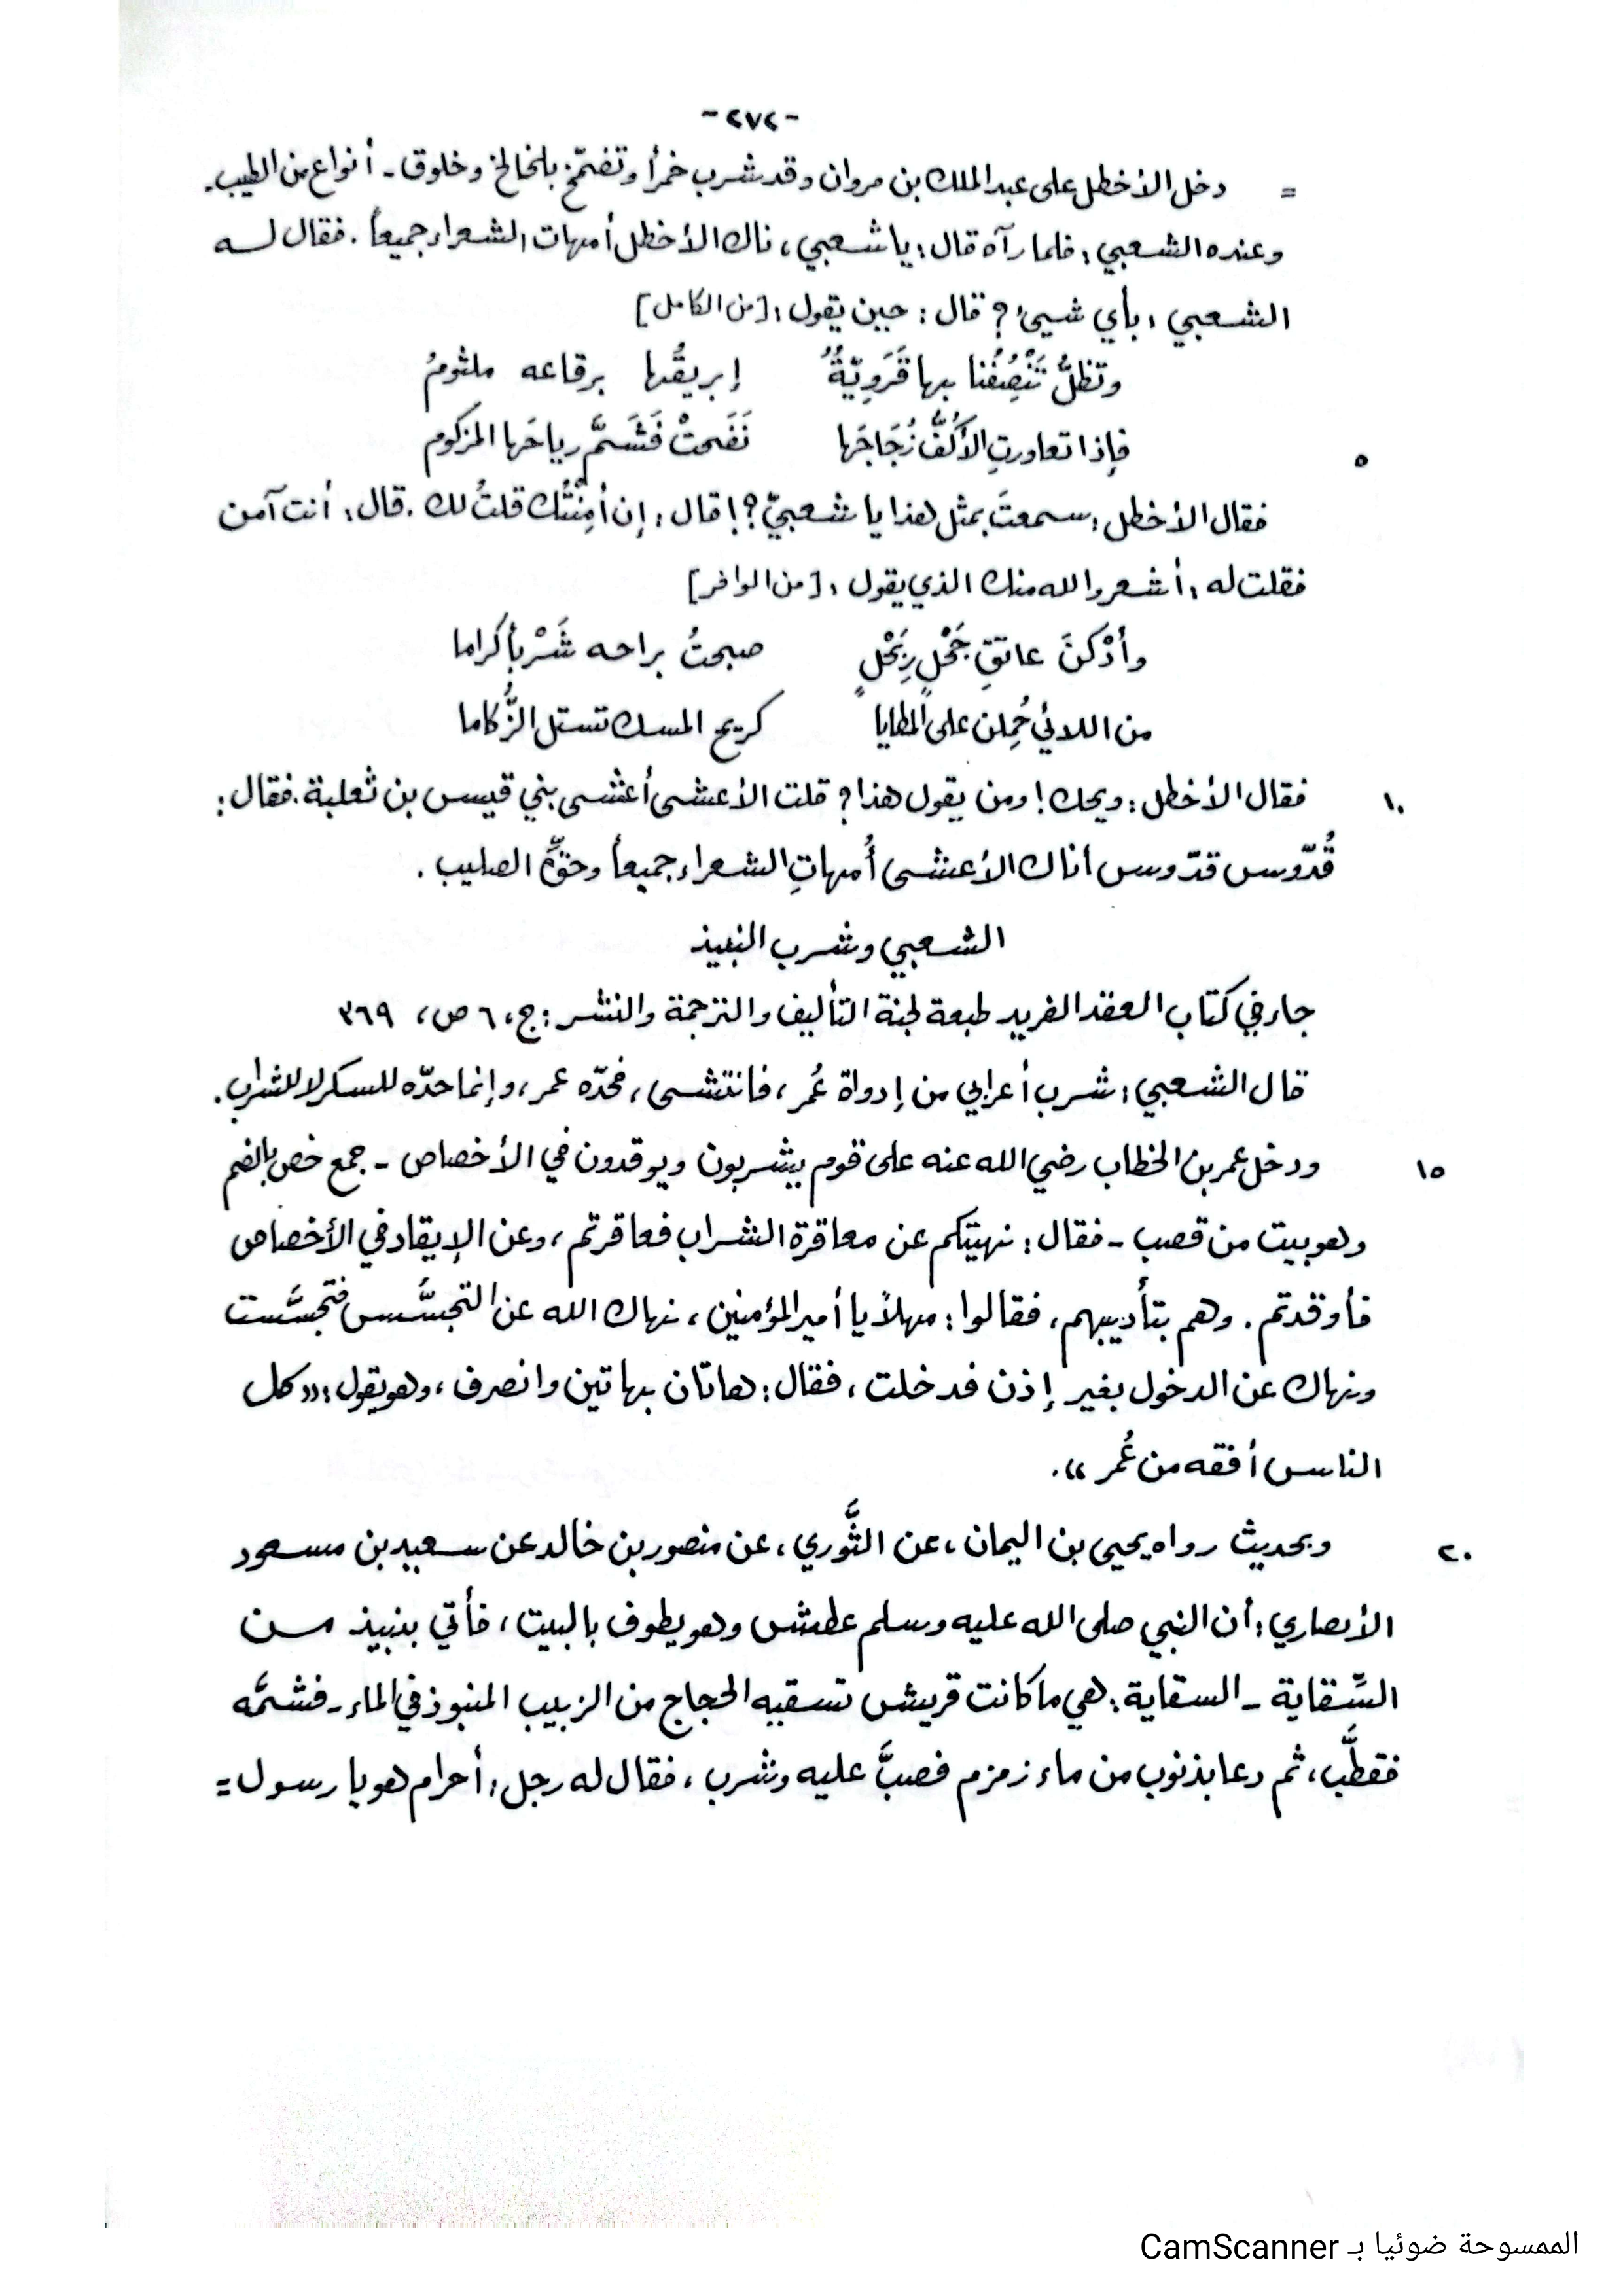 -٢٧٢-
= دخل الأخطل على عبد الملك بن مروان وقد شرب خمراً وتضمّخ بلخالخ وخلوق - أنواع من الطيب.
وعنده الشعبي، فلما رآه قال: يا شعبي، ناك الأخطل أمهات الشعراء جميعاً. فقال لـه
الشعبي: بأي شيئ؟ قال: حين يقول: [من الكامل]
وتظلُّ تَنْصِفُنا بها قَرَوِيّةٌ إبريقُها برقاعه ملثومُ
٥ فإذا تعاورتِ الأكُفُّ زُجَاجَها نَفَحتْ فَشَمَّ رياحَها المزكوم
فقال الأخطل: سمعتَ بمثل هذا يا شعبيّ؟! قال: إن أمِنْتُك قلتُ لك. قال: أنت آمن
فقلت له: أشعر والله منك الذي يقول: [من الوافر]
وأدْكنَ عاتقِ جَحْلٍ رِبَحْلٍ صبحتُ براحه شَرْباً كراما
من اللائي حُمِلن على المطايا كريح المسك تستل الزُّكاما
١٠ فقال الأخطل: ويحك! ومن يقول هذا؟ قلت الأعشى أعشى بني قيس بن ثعلبة. فقال:
قُدّوس قدّوس أناك الأعشى أُمهاتِ الشعراء جميعاً وحقِّ الصليب.
الشعبي وشرب النبيذ
جاء في كتاب العقد الفريد طبعة لجنة التأليف والترجمة والنشر: ج، ٦ ص، ٣٦٩
قال الشعبي: شرب أعرابي من إدواة عُمر، فانتشى، فحدّه عمر، وإنما حدّه للسكر لا للشراب.
١٥ ودخل عمر بن الخطاب رضي الله عنه على قوم يشربون ويوقدون في الأخصاص - جمع خص بالضم
وهو بيت من قصب - فقال: نهيتكم عن معاقرة الشراب فعاقرتم، وعن الإيقاد في الأخصاص
فأوقدتم. وهم بتأديبهم، فقالوا: مهلاً يا أمير المؤمنين، نهاك الله عن التجسَّس فتجسَّست
ونهاك عن الدخول بغير إذن فدخلت، فقال: هاتان بهاتين وانصرف، وهو يقول: «كل
الناس أفقه من عُمر».
٢٠ وبحديث رواه يحيى بن اليمان، عن الثَّوري، عن منصور بن خالد عن سعيد بن مسعود
الأنصاري: أن النبي صلى الله عليه وسلم عطش وهو يطوف بالبيت، فأتي بنبيذ مـن
السِّقاية - السقاية: هي ما كانت قريش تسقيه الحجاج من الزبيب المنبوذ في الماء - فشمَّه
فقطَّب، ثم دعا بذنوب من ماء زمزم فصبَّ عليه وشرب، فقال له رجل: أحرام هو يا رسول =
الممسوحة ضوئيا بـ CamScanner